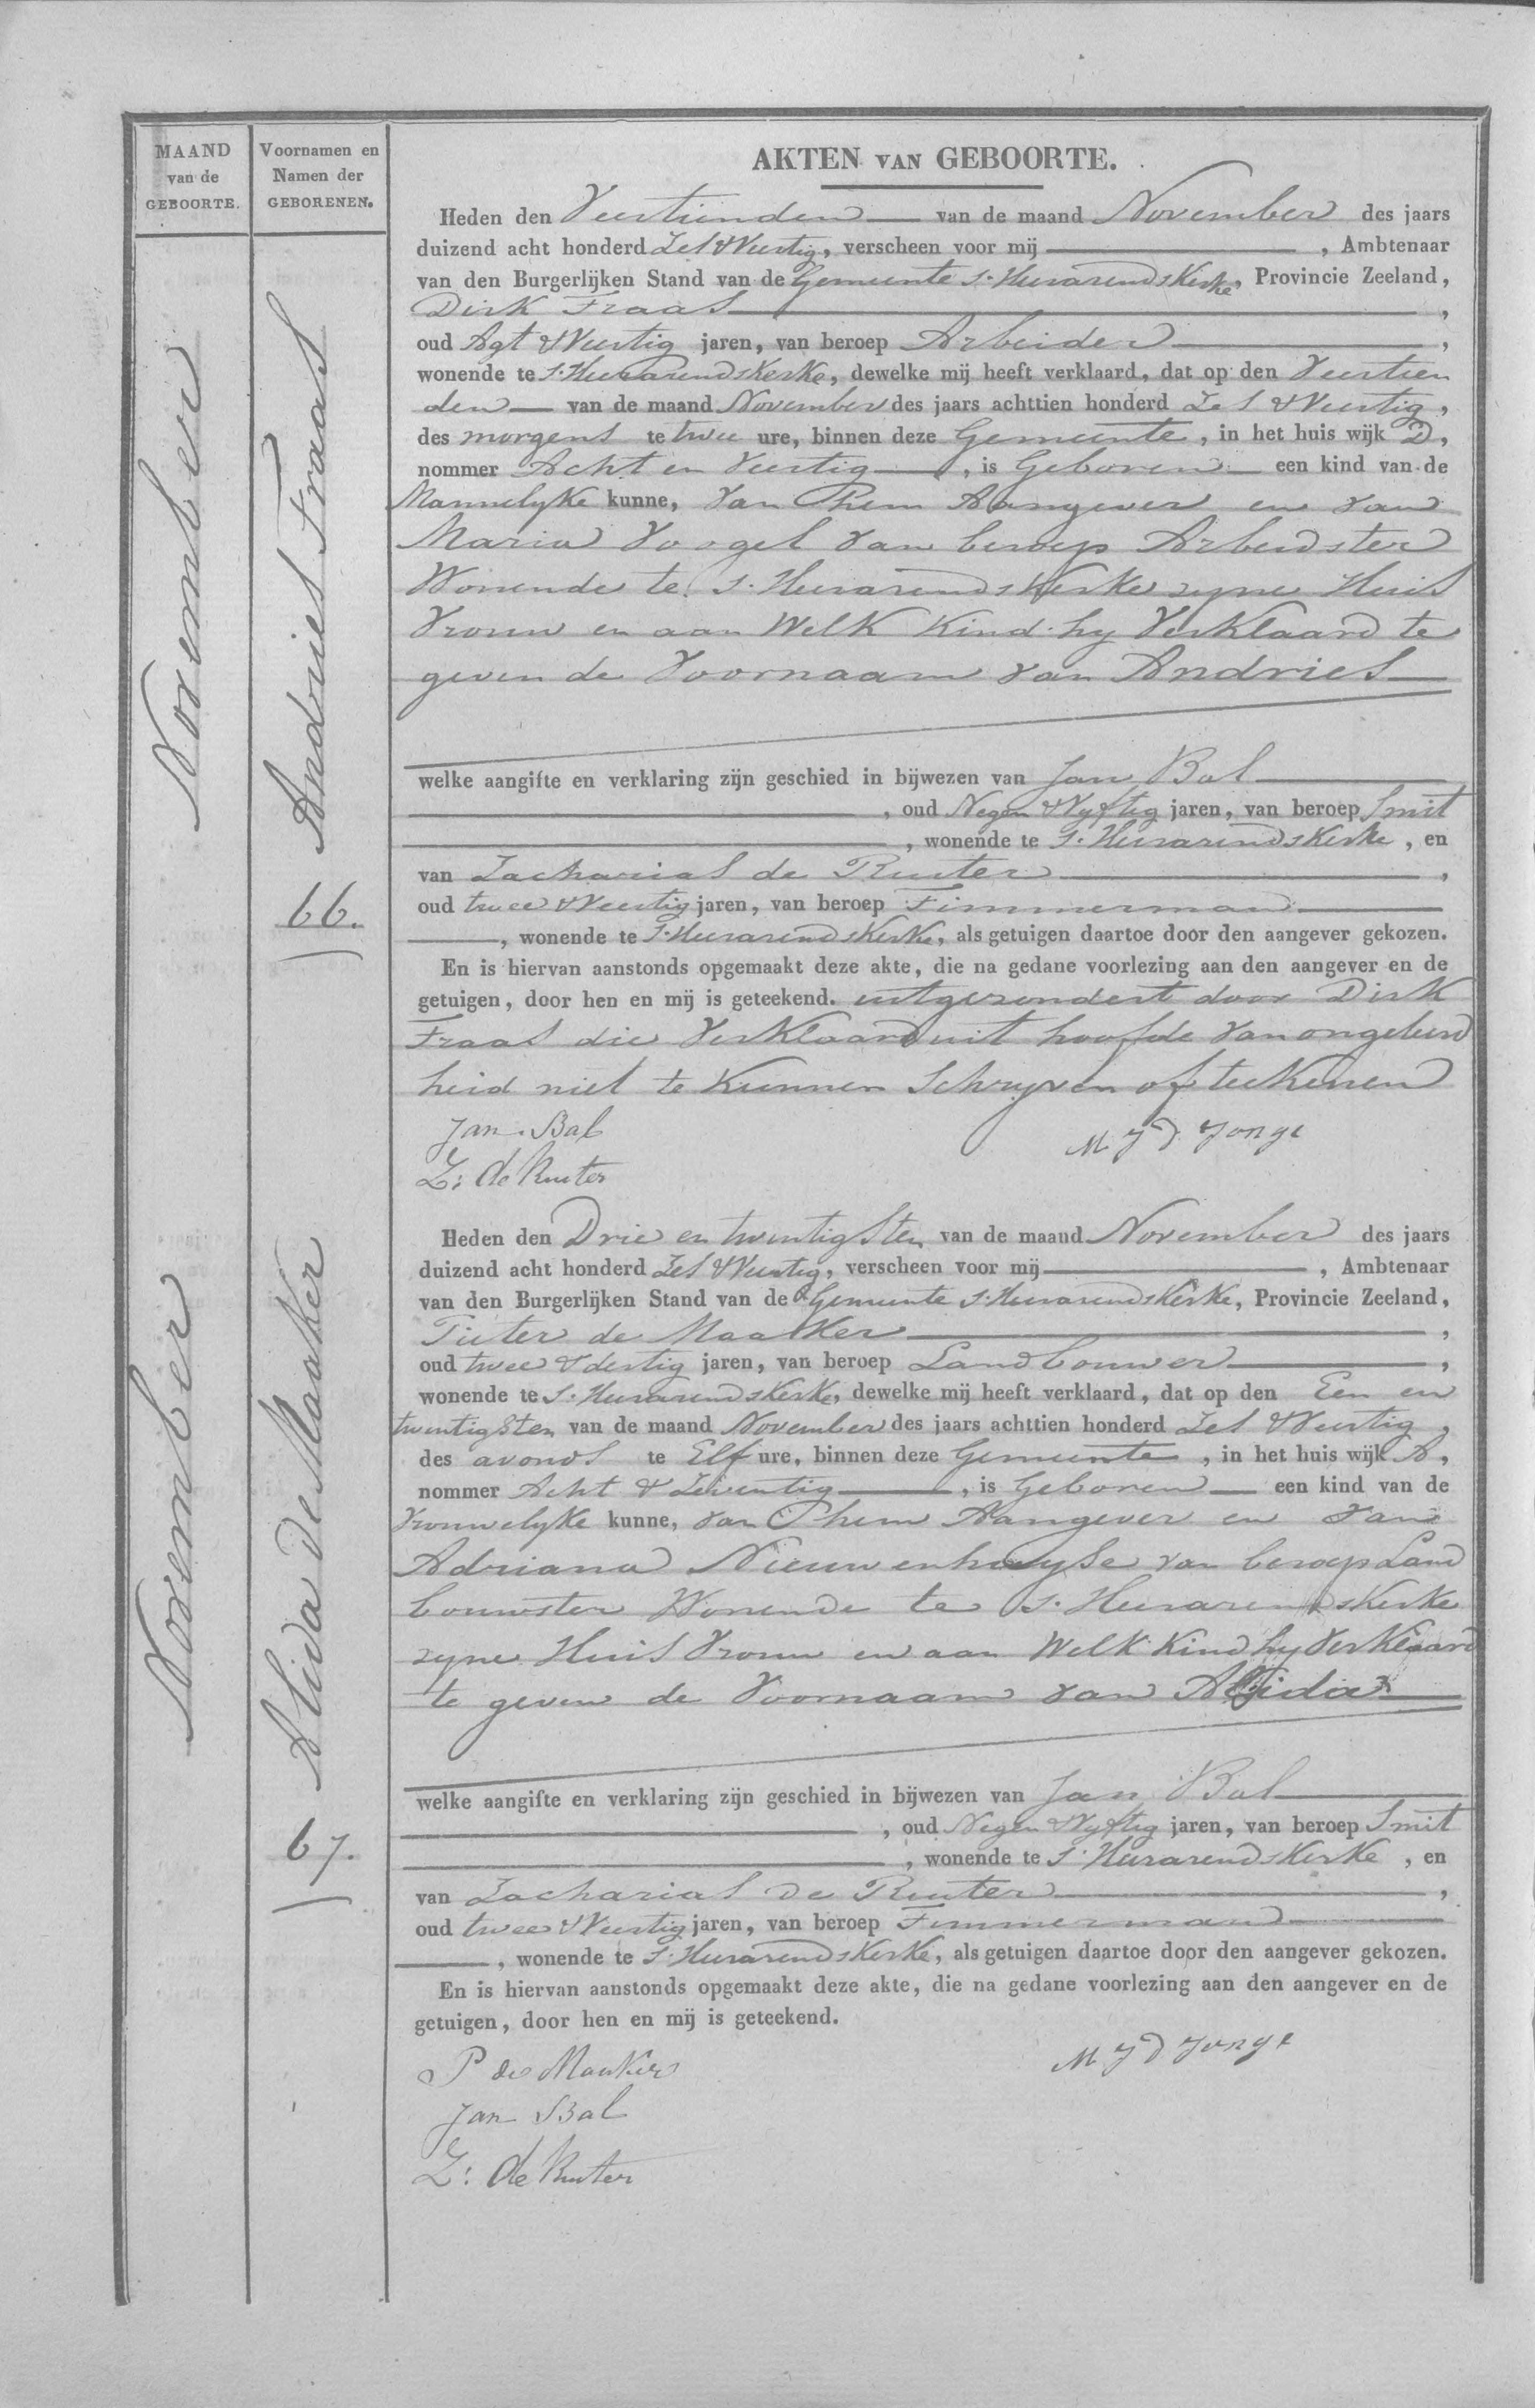 MAAND
van de
GEBOORTE.
Voornamen en
Namen der
GEBORENEN.
November
Andries Fraas
66.
November
Alida De Maaker
67.
AKTEN VAN GEBOORTE.
Heden den Veertienden van de maand November des jaars
duizend acht honderd Zes & Veertig, verscheen voor mij , Ambtenaar
van den Burgerlijken Stand van de Gemeente s. Heerarendskerke, Provincie Zeeland,
Dirk Fraas ,
oud Agt & Veertig jaren, van beroep Arbeider ,
wonende te s. Heerarendskerke, dewelke mij heeft verklaard, dat op den Veertien
den van de maand November des jaars achttien honderd Zes & Veertig,
des morgens te twee ure, binnen deze Gemeente, in het huis wijk D,
nommer Acht en Veertig , is Geboren een kind van de
Mannelyke kunne, van Phem Aangever en van
Maria Voogel van beroep Arbeidster
Wonende te s. Heerarendskerke zyne Huis
Vrouw en aan Welk Kind hy Verklaard te
geven de Voornaam van Andries
welke aangifte en verklaring zijn geschied in bijwezen van Jan Bal
, oud Negen & Vyftig jaren, van beroep Smit
, wonende te s. Heerarendskerke, en
van Zacharias de Ruiter ,
oud twee & Veertig jaren, van beroep Timmerman
, wonende te s. Heerarendskerke, als getuigen daartoe door den aangever gekozen.
En is hiervan aanstonds opgemaakt deze akte, die na gedane voorlezing aan den aangever en de
getuigen, door hen en mij is geteekend. uitgezondert door Dirk
Fraas die Verklaard uit hoofde van ongeleerd
heid niet te Kunnen Schryven of teekenen
Jan Bal
M J D Jonge
Z: de Ruiter
Heden den Drie en twintigsten van de maand November des jaars
duizend acht honderd Zes & Veertig, verscheen voor mij , Ambtenaar
van den Burgerlijken Stand van de Gemeente s. Heerarendskerke, Provincie Zeeland,
Pieter de Maaker ,
oud twee & dertig jaren, van beroep Landbouwer ,
wonende te s. Heerarendskerke, dewelke mij heeft verklaard, dat op den Een en
twintigsten van de maand November des jaars achttien honderd Zes & Veertig,
des avonds te Elf ure, binnen deze Gemeente , in het huis wijk A,
nommer Acht & Zeventig , is Geboren een kind van de
Vrouwelyke kunne, van Phem Aangever en van
Adriana Nieuwenhuyse van beroep Land
bouwster Wonende te s. Heerarendskerke
zyne Huis Vrouw en aan Welk Kind hy Verklaard
te geven de Voornaam van Alida
welke aangifte en verklaring zijn geschied in bijwezen van Jan Bal
, oud Negen & Vyftig jaren, van beroep Smit
, wonende te s. Heerarendskerke, en
van Zacharias De Ruiter ,
oud twee & Veertig jaren, van beroep Timmerman
, wonende te s. Heerarendskerke, als getuigen daartoe door den aangever gekozen.
En is hiervan aanstonds opgemaakt deze akte, die na gedane voorlezing aan den aangever en de
getuigen, door hen en mij is geteekend.
P de Maaker
M J D Jonge
Jan Bal
Z: de Ruiter